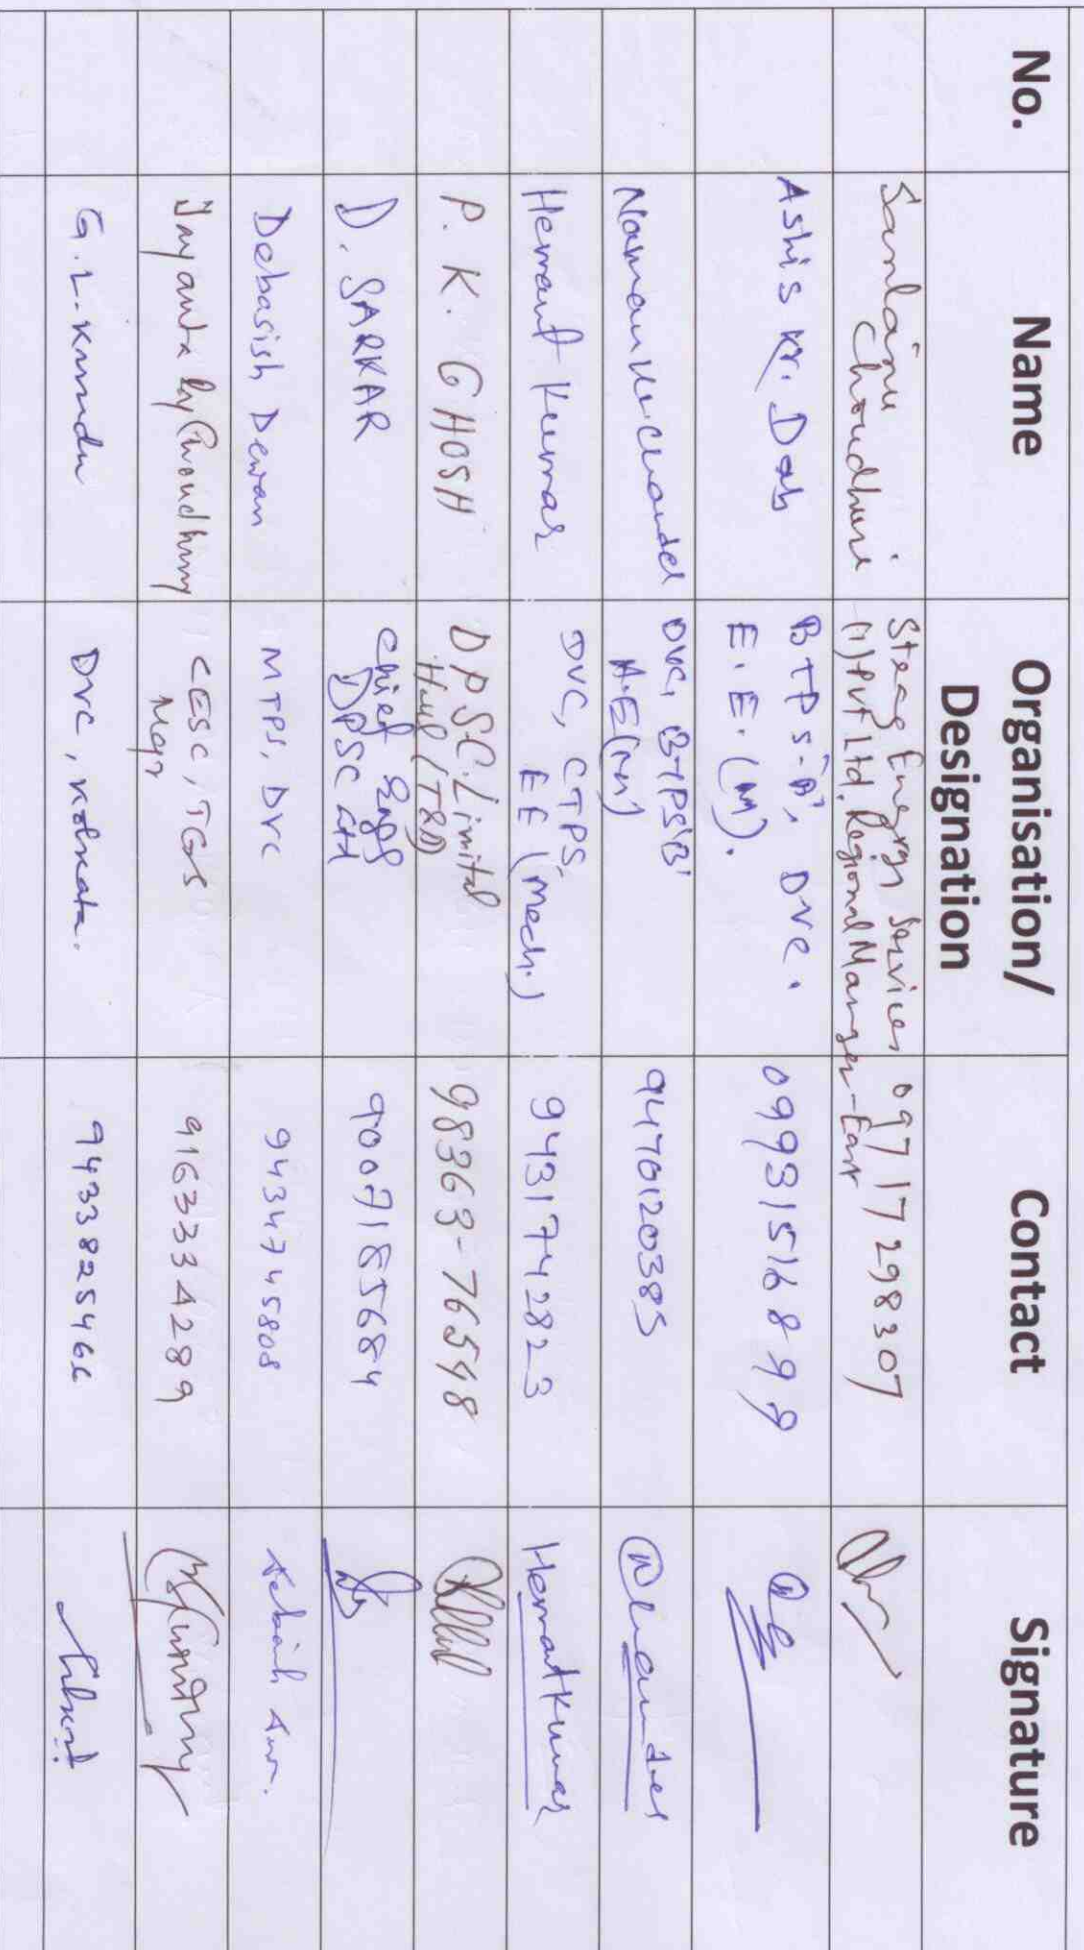 No. Name Organisation/ Designation Contact Signature
Santanu Choudhuri Steag Energy Services (I) Pvt Ltd, Regional Manager-East 09717298307
Ashis Kr. Das BTPS-'B', DVC. E.E.(M). 09931516899
Naman Kr. Chandel DVC, BTPS'B' A.E(M) 9470120385 Chandel
Hemant Kumar DVC, CTPS, EE (Mech.) 9431742823 Hemant Kumar
P. K. GHOSH DPSC Limited (T&D) 98363-76548
D. SARKAR Chief Engg DPSC Ltd 9007185684
Debasish Dewan MTPS, DVC 9434745808
Jayanta Roy Choudhury CESC, TGS Mgr 9163334289
G.L. Kundu DVC, Kolkata. 9433825466